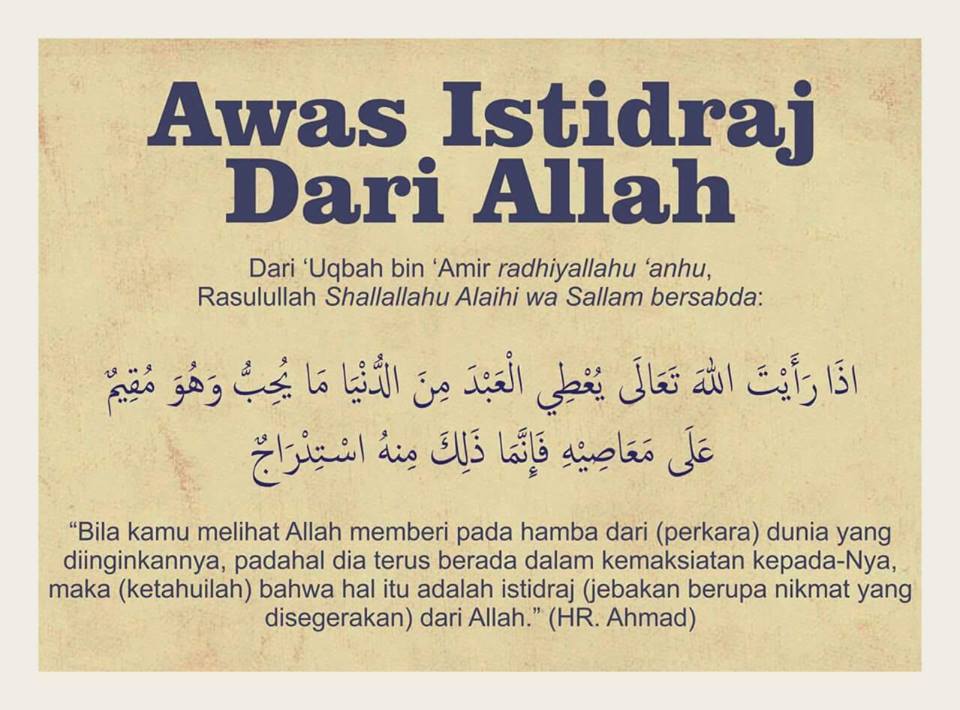 Awas Istidraj
Dari Allah
Dari ‘Uqbah bin ‘Amir radhiyallahu ‘anhu,
Rasulullah Shallallahu Alaihi wa Sallam bersabda:
اذَا رَأَيْتَ اللهَ تَعَالَى يُعْطِي الْعَبْدَ مِنَ الدُّنْيَا مَا يُحِبُّ وَهُوَ مُقِيمٌ
عَلَى مَعَاصِيْهِ فَإِنَّمَا ذَلِكَ مِنهُ اسْتِدْرَاجٌ
“Bila kamu melihat Allah memberi pada hamba dari (perkara) dunia yang
diinginkannya, padahal dia terus berada dalam kemaksiatan kepada-Nya,
maka (ketahuilah) bahwa hal itu adalah istidraj (jebakan berupa nikmat yang
disegerakan) dari Allah.” (HR. Ahmad)